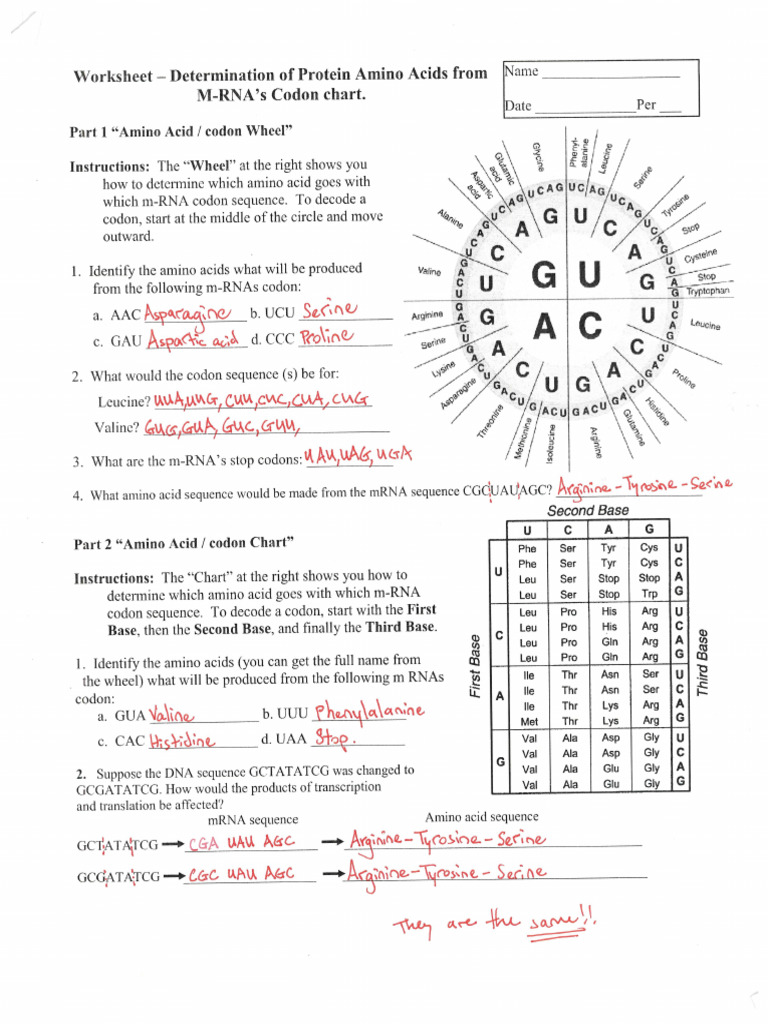 Worksheet – Determination of Protein Amino Acids from
M-RNA's Codon chart.
Name
Date Per
Part 1 "Amino Acid / codon Wheel"
Instructions: The "Wheel" at the right shows you
how to determine which amino acid goes with
which m-RNA codon sequence. To decode a
codon, start at the middle of the circle and move
outward.
1. Identify the amino acids what will be produced
from the following m-RNAs codon:
a. AAC Asparagine b. UCU Serine
c. GAU Aspartic acid d. CCC Proline
2. What would the codon sequence (s) be for:
Leucine? UUA,UUG, CUU,CUC,CUA,CUG
Valine? GUG,GUA, GUC,GUU,
3. What are the m-RNA's stop codons: UAU,UAG,UGA
4. What amino acid sequence would be made from the mRNA sequence CGCUAUAGC? Arginine-Tyrosine-Serine
Glycine
Phenyl-
alanine
Leucine
Serine
Tyrosine
Stop
Cysteine
Stop
Tryptophan
Leucine
Proline
Histidine
Glutamine
Arginine
Isoleucine
Methionine
Threonine
Asparagine
Lysine
Serine
Arginine
Valine
Alanine
Aspartic
acid
Glutamic
acid
G U
A C
Part 2 "Amino Acid / codon Chart"
Instructions: The "Chart" at the right shows you how to
determine which amino acid goes with which m-RNA
codon sequence. To decode a codon, start with the First
Base, then the Second Base, and finally the Third Base.
1. Identify the amino acids (you can get the full name from
the wheel) what will be produced from the following m RNAs
codon:
a. GUA Valine b. UUU Phenylalanine
c. CAC Histidine d. UAA Stop.
Second Base
U C A G
First Base
Third Base
U
Phe Ser Tyr Cys U
Phe Ser Tyr Cys C
Leu Ser Stop Stop A
Leu Ser Stop Trp G
C
Leu Pro His Arg U
Leu Pro His Arg C
Leu Pro Gln Arg A
Leu Pro Gln Arg G
A
Ile Thr Asn Ser U
Ile Thr Asn Ser C
Ile Thr Lys Arg A
Met Thr Lys Arg G
G
Val Ala Asp Gly U
Val Ala Asp Gly C
Val Ala Glu Gly A
Val Ala Glu Gly G
2. Suppose the DNA sequence GCTATATCG was changed to
GCGATATCG. How would the products of transcription
and translation be affected?
mRNA sequence Amino acid sequence
GCTATATCG → CGA UAU AGC → Arginine-Tyrosine-Serine
GCGATATCG → CGC UAU AGC → Arginine-Tyrosine-Serine
They are the same!!